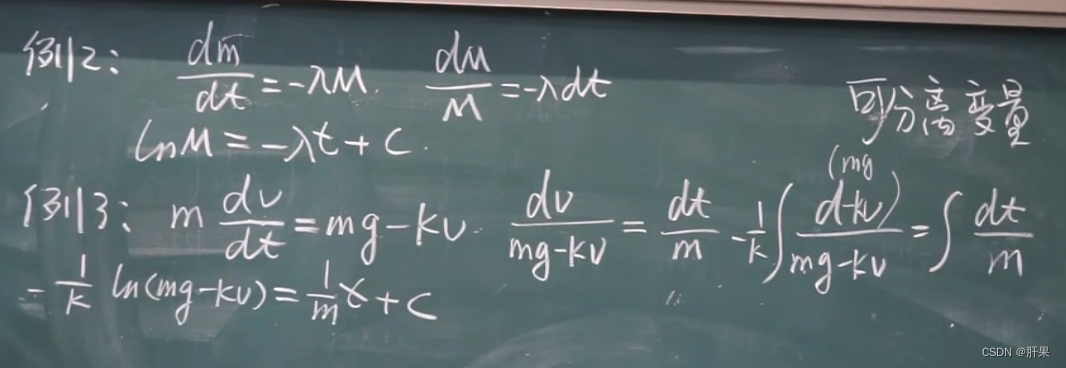 例2: dm/dt = -λM. dM/M = -λdt
可分离变量
lnM = -λt + C.
例3: m dv/dt = mg - kv. dv/(mg-kv) = dt/m -1/k ∫ d(mg-kv)/(mg-kv) = ∫ dt/m
-1/k ln(mg-kv) = 1/m t + C
CSDN @肝果